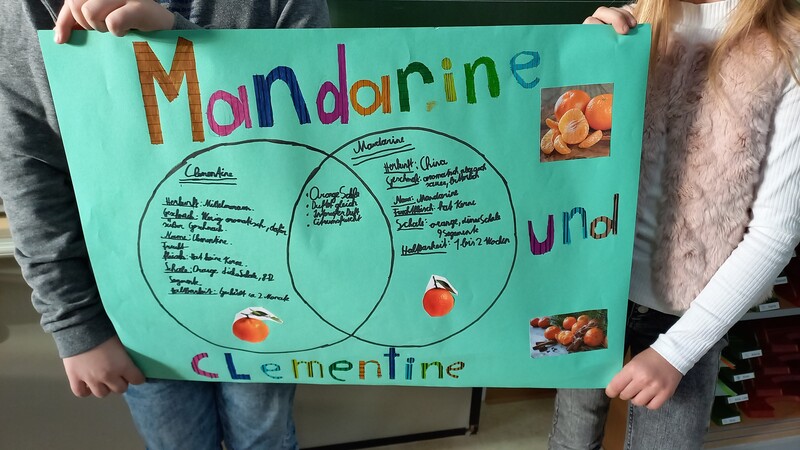 Mandarine
und
Clementine
Clementine
Herkunft: Mittelmeerraum
Geschmack: aromatisch,
süßer Geschmack
Name: Clementine
Frucht
fleisch: hat keine Kerne
Schale: Orange, dicke Schale, 8-12
Segmente
Haltbarkeit: Gekühlt ca 2 Monate
Orange Schale
Duftet gleich
Citrusfrucht
Mandarine
Herkunft: China
Geschmack: aromatisch,
Name: Mandarine
Fruchtfleisch hat Kerne
Schale: orange, dünne Schale
9 Segmente
Haltbarkeit: 1 bis 2 Wochen